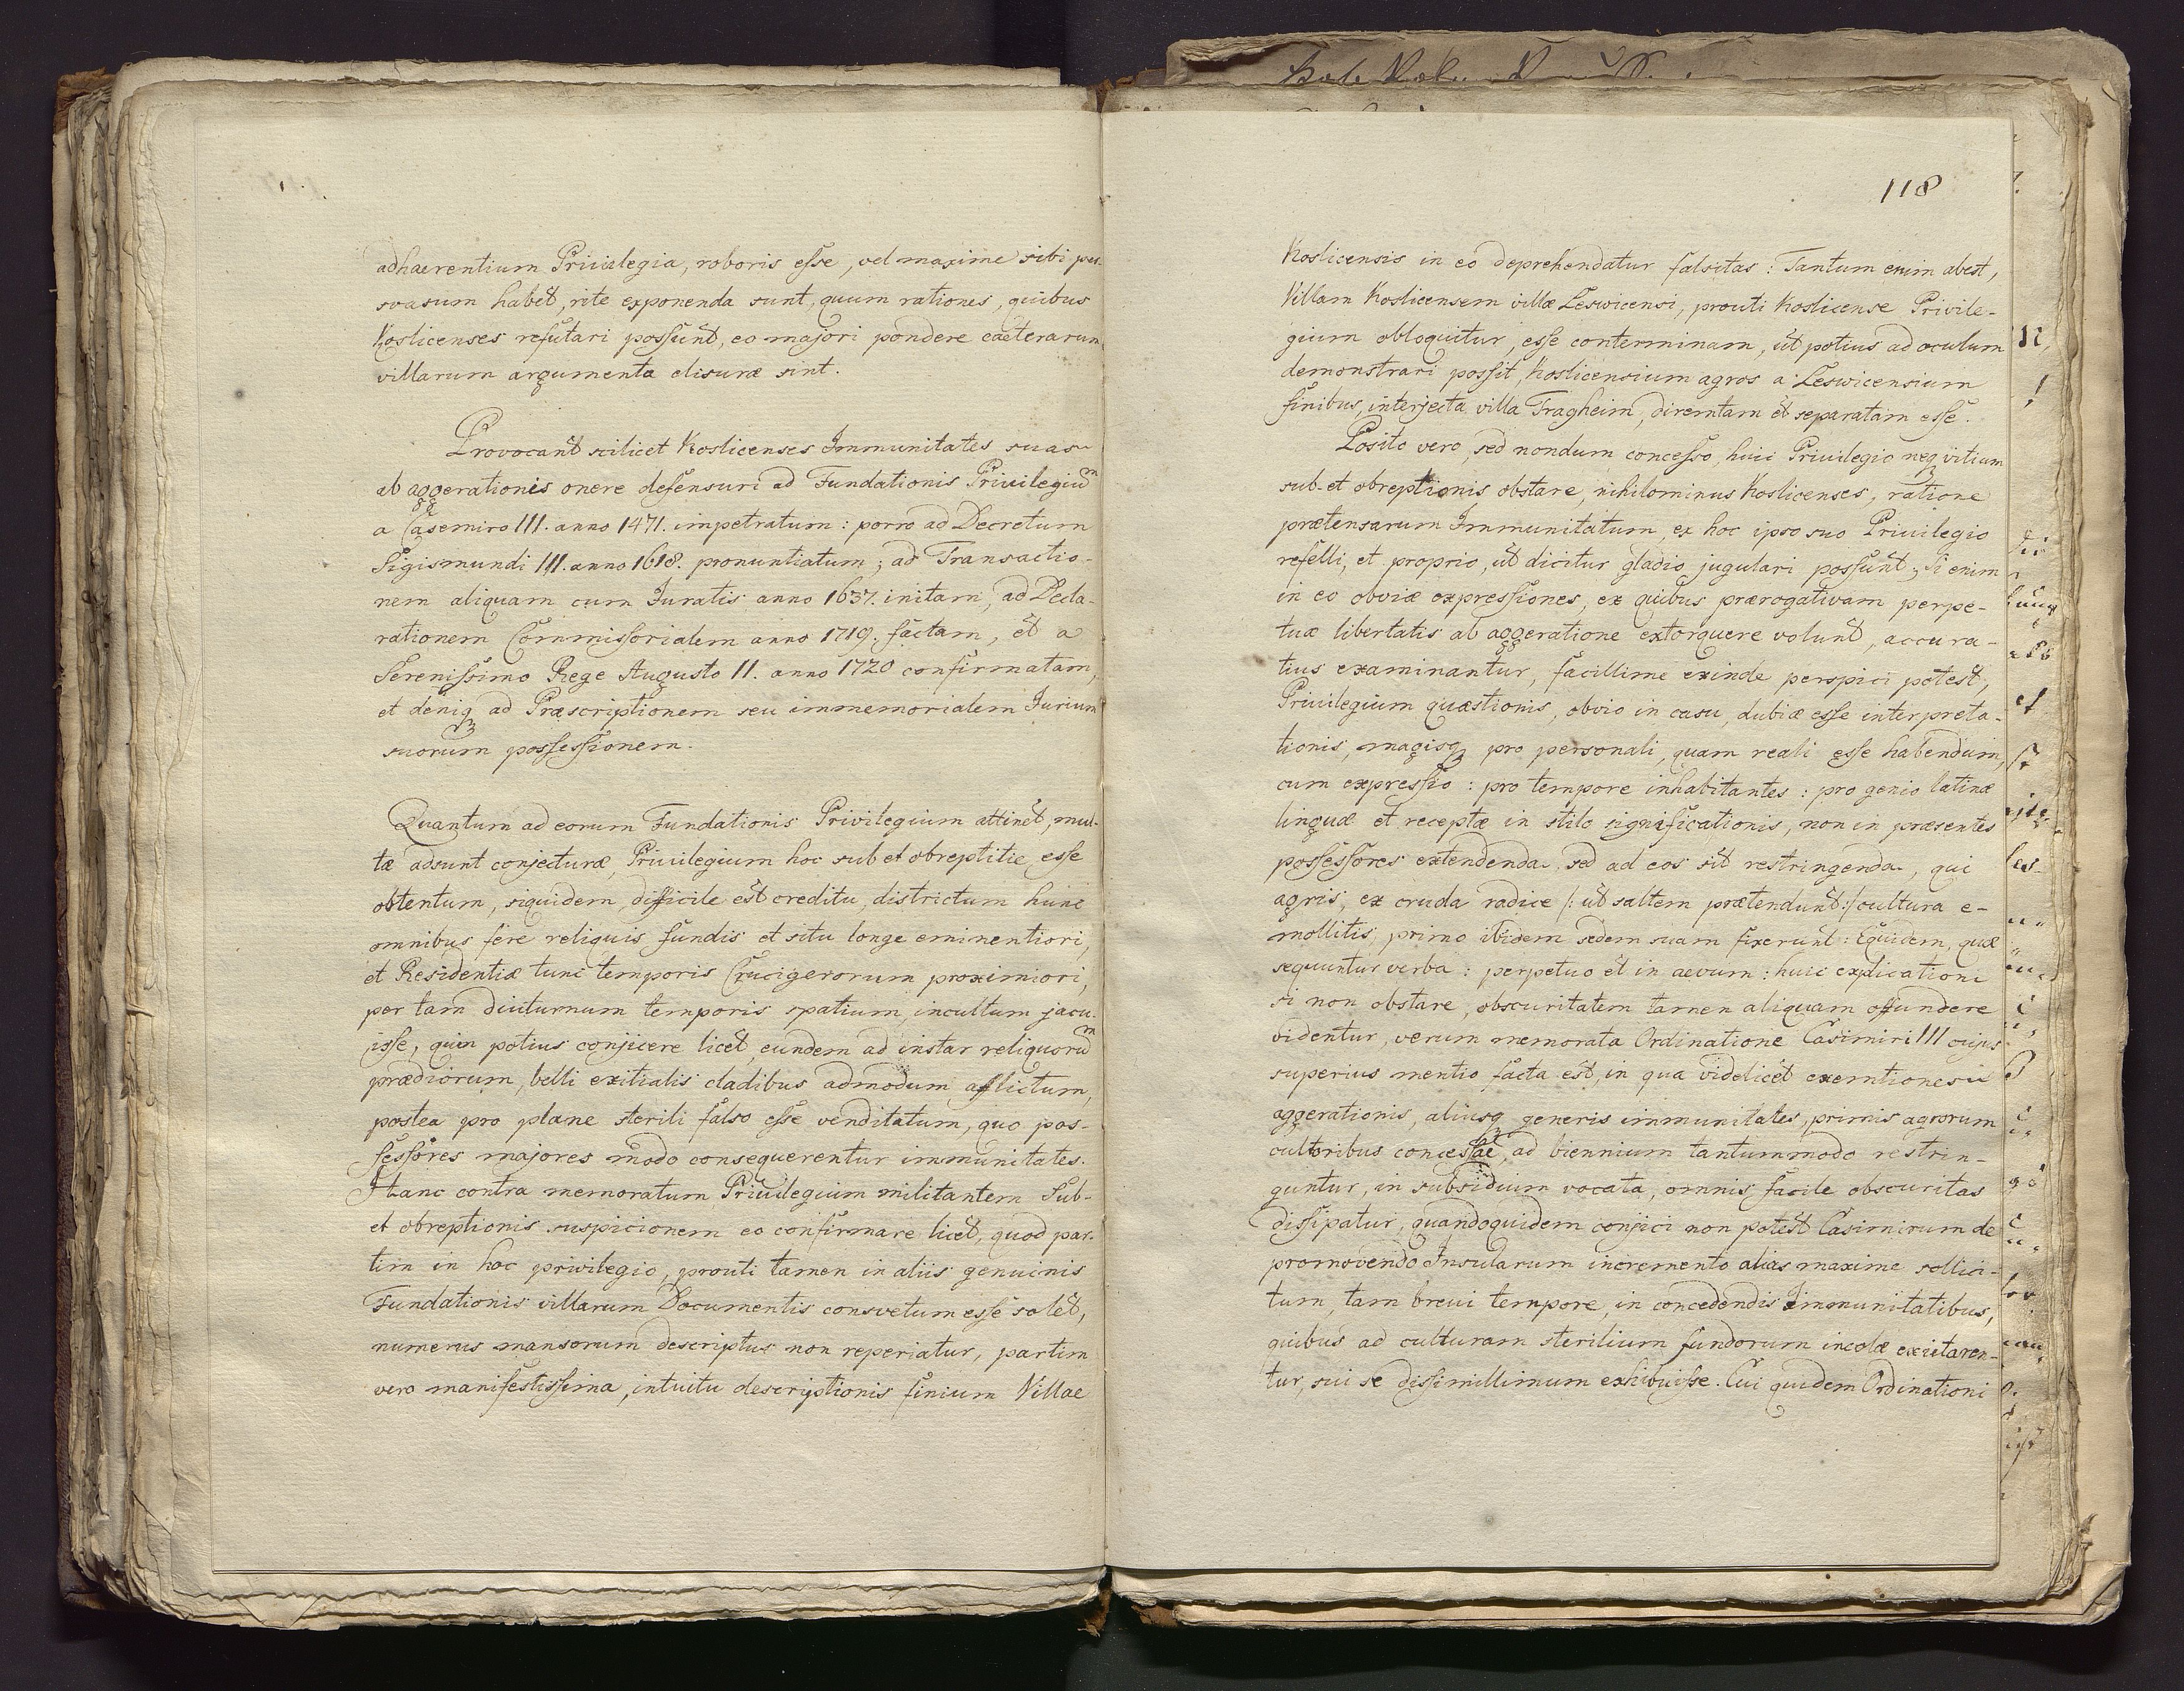 adhaerentium Privilegia, roboris esse, vel maxime sibi per-
svasum habet, rite exponenda sunt, quum rationes, quibus
Koslicenses refutari possunt, eo majori pondere caeterarum
villarum argumenta elisuræ sint.
Provocant scilicet Koslicenses Immunitates suas
ab aggerationis onere defensuri ad Fundationis Privilegium
a Casemiro III. anno 1471. impetratum: porro ad Decretum
Sigismundi III. anno 1618. pronuntiatum; ad Transactio-
nem aliquam cum Iuratis anno 1637. initam, ad Decla-
rationem Commissorialem anno 1719. factam, et a
Serenissimo Rege Augusto II. anno 1720 confirmatam,
et deniq ad Præscriptionem seu immemorialem Iurium
suorum possessionem.
Quantum ad eorum Fundationis Privilegium attinet, mul-
tæ adsunt conjecturæ, Privilegium hoc sub et obreptitie esse
obtentum, siquidem difficile est creditu, districtum hunc
omnibus fere reliquis fundis et situ longe eminentiori,
et Residentiæ tunc temporis Crucigerorum proximiori,
per tam diuturnum temporis spatium, incultum jacu-
isse, quin potius conjicere licet, eundem ad instar reliquorum
prædiorum, belli exitialis cladibus admodum afflictum,
postea pro plane sterili falso esse venditatum, quo pos-
sessores majores modo consequerentur immunitates.
Hanc contra memoratum Privilegium militantem Sub-
et obreptionis suspicionem eo confirmare licet, quod par-
tim in hoc privilegio, prouti tamen in aliis genuinis
Fundationis villarum Documentis consvetum esse solet,
numerus mansorum descriptus non reperiatur, partim
vero manifestissima, intuitu descriptionis finium Villae
118
Koslicensis in eo deprehendatur falsitas: Tantum enim abest,
Villam Koslicensem villæ Leswicensi, prouti Koslicense Privile-
gium obloquitur, esse conterminam, ut potius ad oculum
demonstrari possit, Koslicensium agros a Leswicensium
finibus, interjecta villa Tragheim, diremtam et separatam esse.
Posito vero, sed nondum concesso, huic Privilegio neq vitium
sub- et obreptionis obstare, nihilominus Koslicenses, ratione
prætensarum Immunitatum, ex hoc ipso suo Privilegio
refelli, et proprio, ut dicitur gladio jugulari possunt; Si enim
in eo obviæ expressiones, ex quibus prærogativam perpe-
tuæ libertatis ab aggeratione extorquere volunt, accura-
tius examinantur, facillime exinde perspici potest,
Privilegium quæstionis, obvio in casu, dubiæ esse interpreta-
tionis, magisq pro personali, quam reali esse habendum,
cum expressio: pro tempore inhabitantes: pro genio latinæ
linguæ et receptæ in stilo significationis, non in præsentes
possessores extendenda, sed ad eos sit restringenda, qui
agris, ex cruda radice /: ut saltem prætendunt:/ cultura e-
mollitis, primo ibidem sedem suam fixerunt: Equidem, quæ
sequuntur verba: perpetuo et in aevum: huic explicationi
si non obstare, obscuritatem tamen aliquam offundere
videntur, verum memorata Ordinatione Casimiri III cujus
superius mentio facta est, in qua videlicet exemtiones
aggerationis, aliusq generis immunitates, primis agrorum
cultoribus concessae, ad biennium tantummodo restrin-
guntur, in subsidium vocata, omnis facile obscuritas
dissipatur, quandoquidem conjici non potest Casimirum de
promovendo Insularum incremento alias maxime sollici-
tum, tam brevi tempore, in concedendis Immunitatibus,
quibus ad culturam sterilium fundorum incolæ excitaren-
tur, sui se dissimillimum exhibuisse. Cui quidem Ordinationi